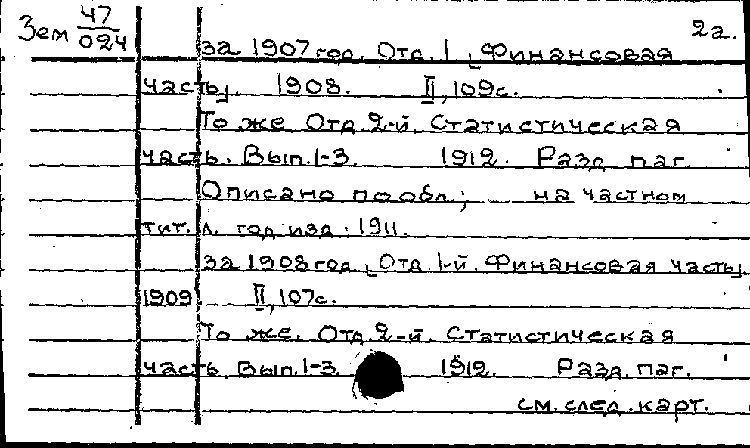 Зем 47/024
2а.
за 1907 год. Отд. I [Финансовая
часть]. 1908. II, 109с.
То же. Отд. 2-й. Статистическая
часть. Вып. 1-3. 1912. Разд. паг.
Описано по обл.; на частном
тит. л. год изд. 1911.
за 1908 год [Отд. 1-й. Финансовая часть].
1909 II, 107с.
То же. Отд. 2-й. Статистическая
часть. Вып. 1-3 1912. Разд. паг.
см. след. карт.